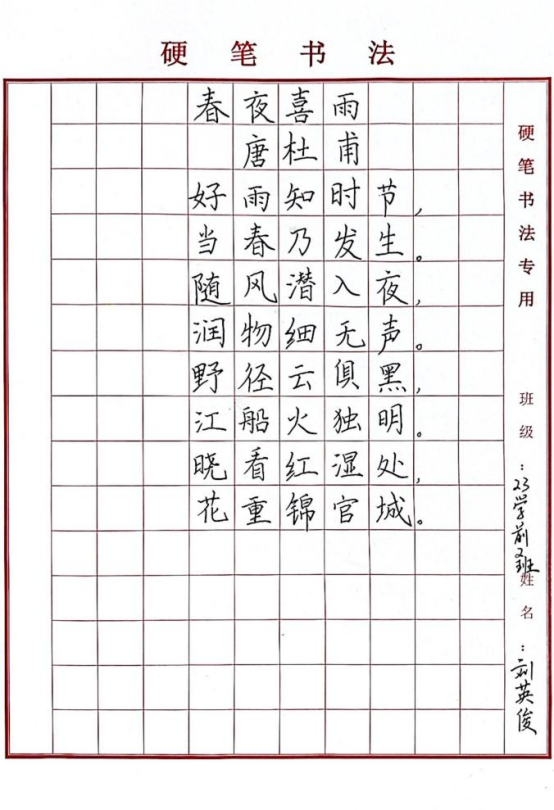 硬笔书法
春夜喜雨
唐杜甫
好雨知时节，
当春乃发生。
随风潜入夜，
润物细无声。
野径云俱黑，
江船火独明。
晓看红湿处，
花重锦官城。
硬笔书法专用
班级：23学前2班
姓名：刘英俊